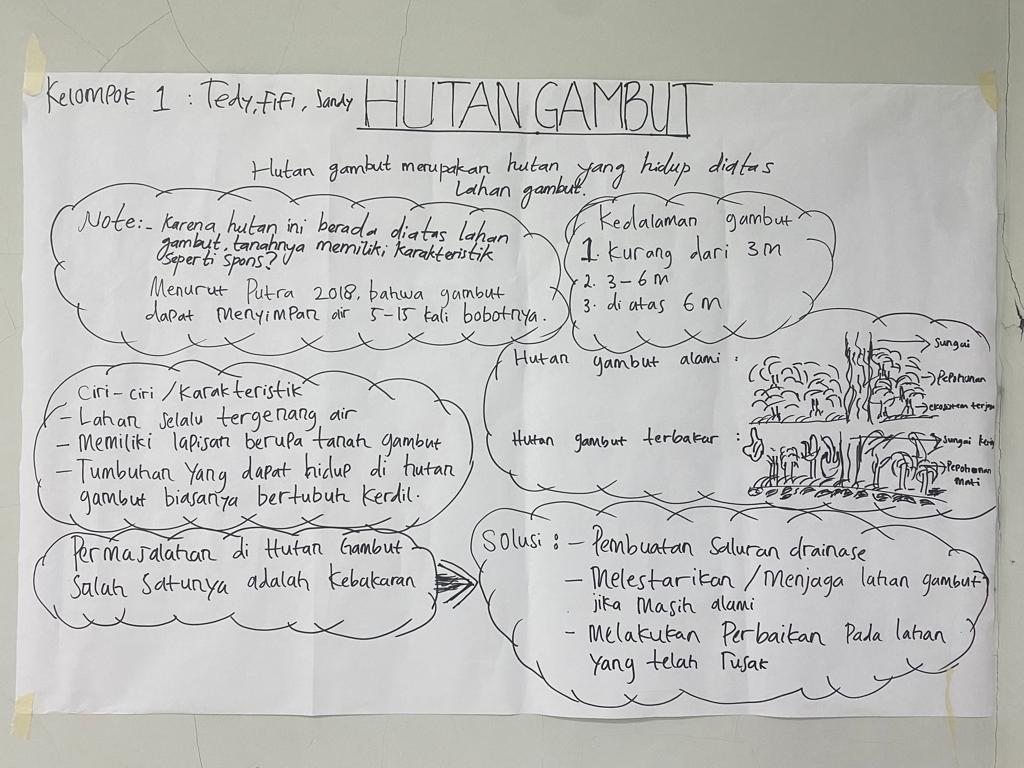 Kelompok 1 : Tedy, FiFi, Sandy
HUTAN GAMBUT
Hutan gambut merupakan hutan yang hidup diatas
Lahan gambut.
Note:- Karena hutan ini berada diatas lahan
gambut, tanahnya memiliki karakteristik
seperti spons?
Menurut Putra 2018, bahwa gambut
dapat menyimpan air 5-15 kali bobotnya.
Kedalaman gambut
1. Kurang dari 3m
2. 3-6 m
3. di atas 6 m
Hutan gambut alami :
Sungai
Pepohonan
ekosistem terjaga
Hutan gambut terbakar :
Sungai Kerin
Pepohonan
mati
Ciri-ciri / Karakteristik
- Lahan selalu tergenang air
- Memiliki lapisan berupa tanah gambut
- Tumbuhan yang dapat hidup di hutan
gambut biasanya bertubuh kerdil.
Permasalahan di Hutan Gambut
Salah Satunya adalah Kebakaran
Solusi : - Pembuatan Saluran drainase
- Melestarikan / Menjaga lahan gambut
jika Masih alami
- Melakukan Perbaikan Pada lahan
yang telah rusak